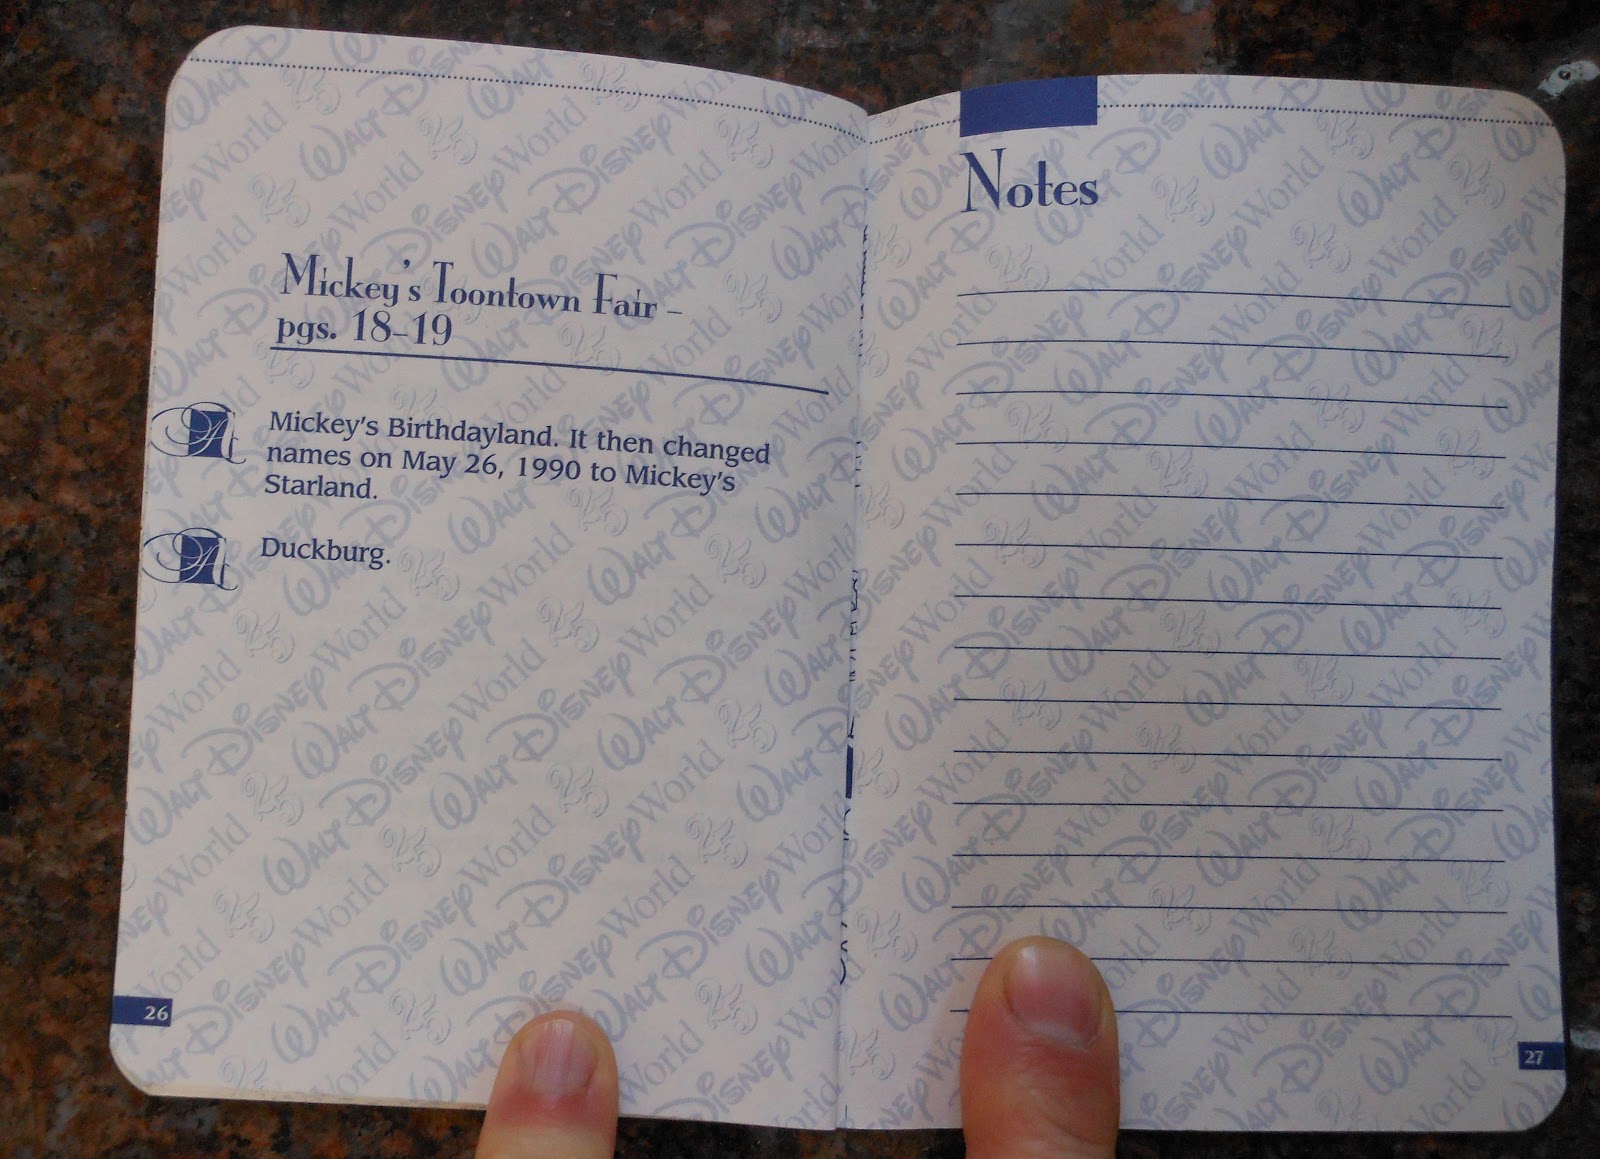 Mickey's Toontown Fair –
pgs. 18–19
A
Mickey's Birthdayland. It then changed
names on May 26, 1990 to Mickey's
Starland.
A
Duckburg.
26
Notes
27
Walt Disney World